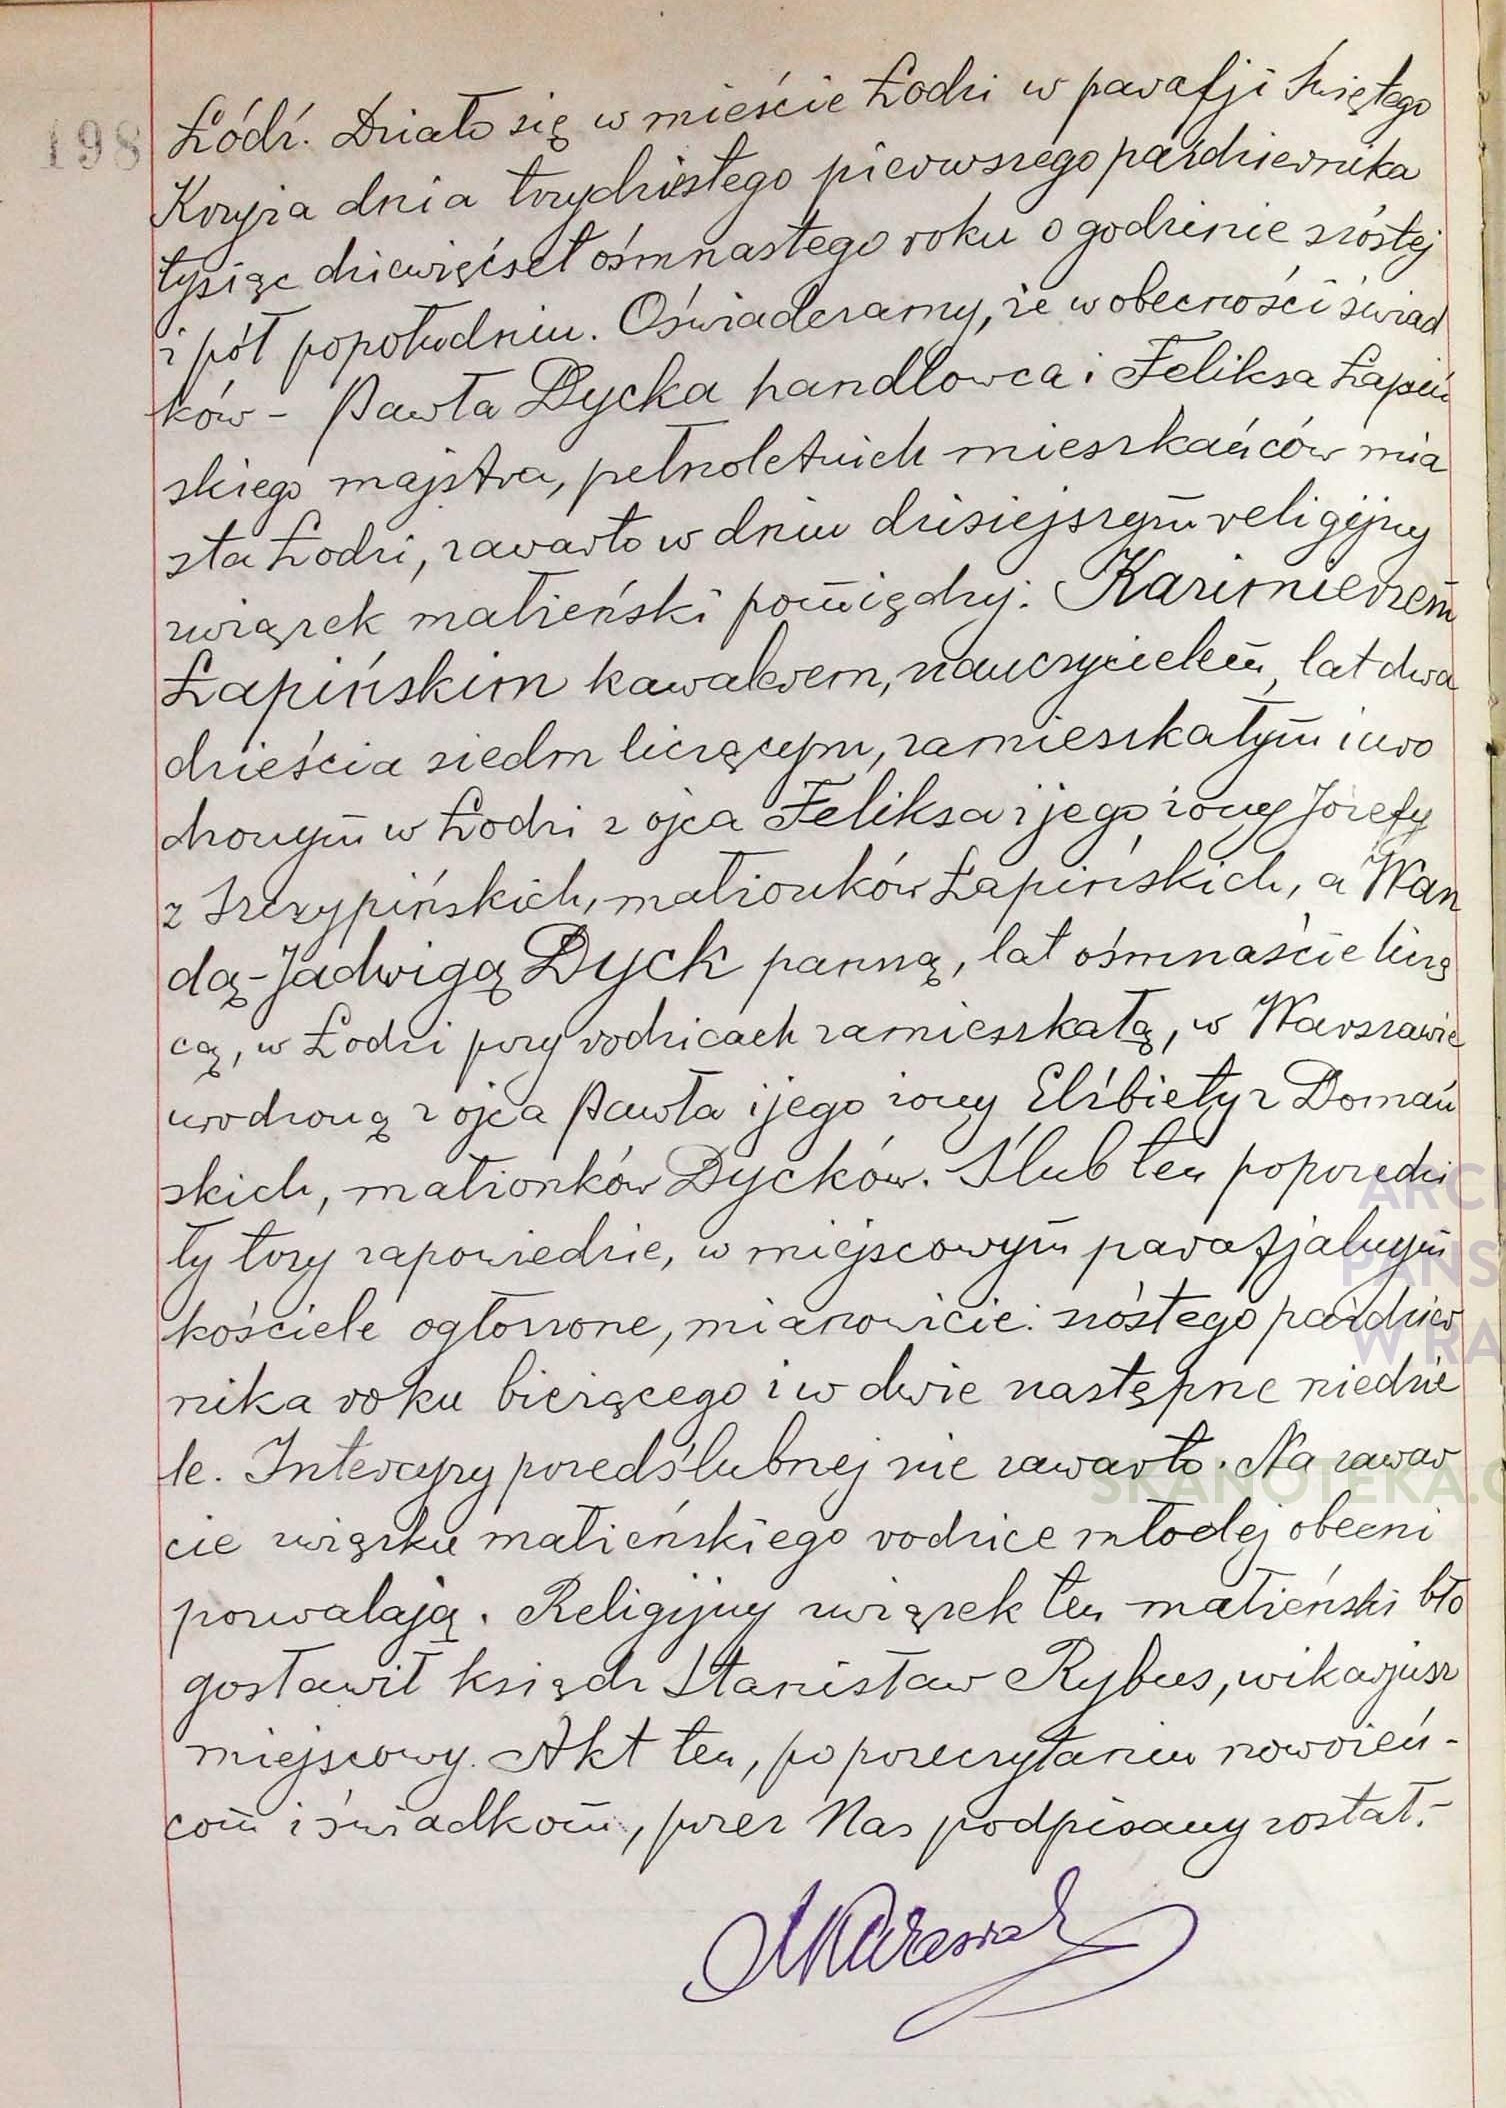 198
Łódź. Działo się w mieście Łodzi w parafji Świętego
Krzyża dnia trzydziestego pierwszego października
tysiąc dziewięćset ośmnastego roku o godzinie szóstej
i pół popołudniu. Oświadczamy, że w obecności świad
ków - Pawła Dycka handlowca i Feliksa Łapiń
skiego majstra, pełnoletnich mieszkańców mia
sta Łodzi, zawarto w dniu dzisiejszym religijny
związek małżeński pomiędzy: Kazimierzem
Łapińskim kawalerem, nauczycielem, lat dwa
dzieścia siedm liczącym, zamieszkałym i uro
dzonym w Łodzi z ojca Feliksa i jego żony Józefy
z Szczypińskich, małżonków Łapińskich, a Wan
dą-Jadwigą Dyck panną, lat ośmnaście liczą
cą, w Łodzi przy rodzicach zamieszkałą, w Warszawie
urodzoną z ojca Pawła i jego żony Elżbiety z Domań
skich, małżonków Dycków. Ślub ten poprzedzi
ły trzy zapowiedzie, w miejscowym parafjalnym
kościele ogłoszone, mianowicie: szóstego paździer
nika roku bieżącego i w dwie następne niedzie
le. Intercyzy przedślubnej nie zawarto. Na zawar
cie związku małżeńskiego rodzice młodej obecni
pozwalają. Religijny związek ten małżeński bło
gosławił ksiądz Stanisław Rybus, wikarjusz
miejscowy. Akt ten, po przeczytaniu nowożeń-
com i świadkom, przez Nas podpisany został.-
ARCH
PAŃS
W RA
SKANOTEKA.